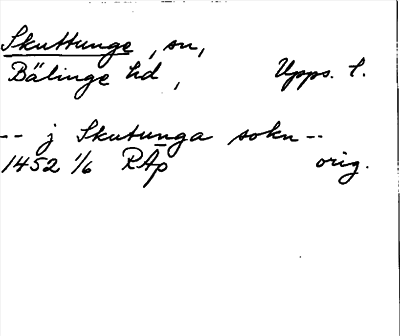 Skuttunge, sn,
Bälinge hd, Upps. l.
-- j Skutunga sokn --
1452 1/6 RAp orig.